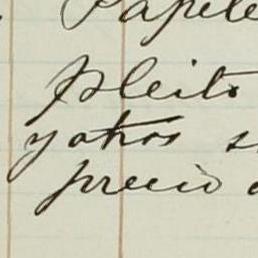 Papele
pleito
y otros s
precio